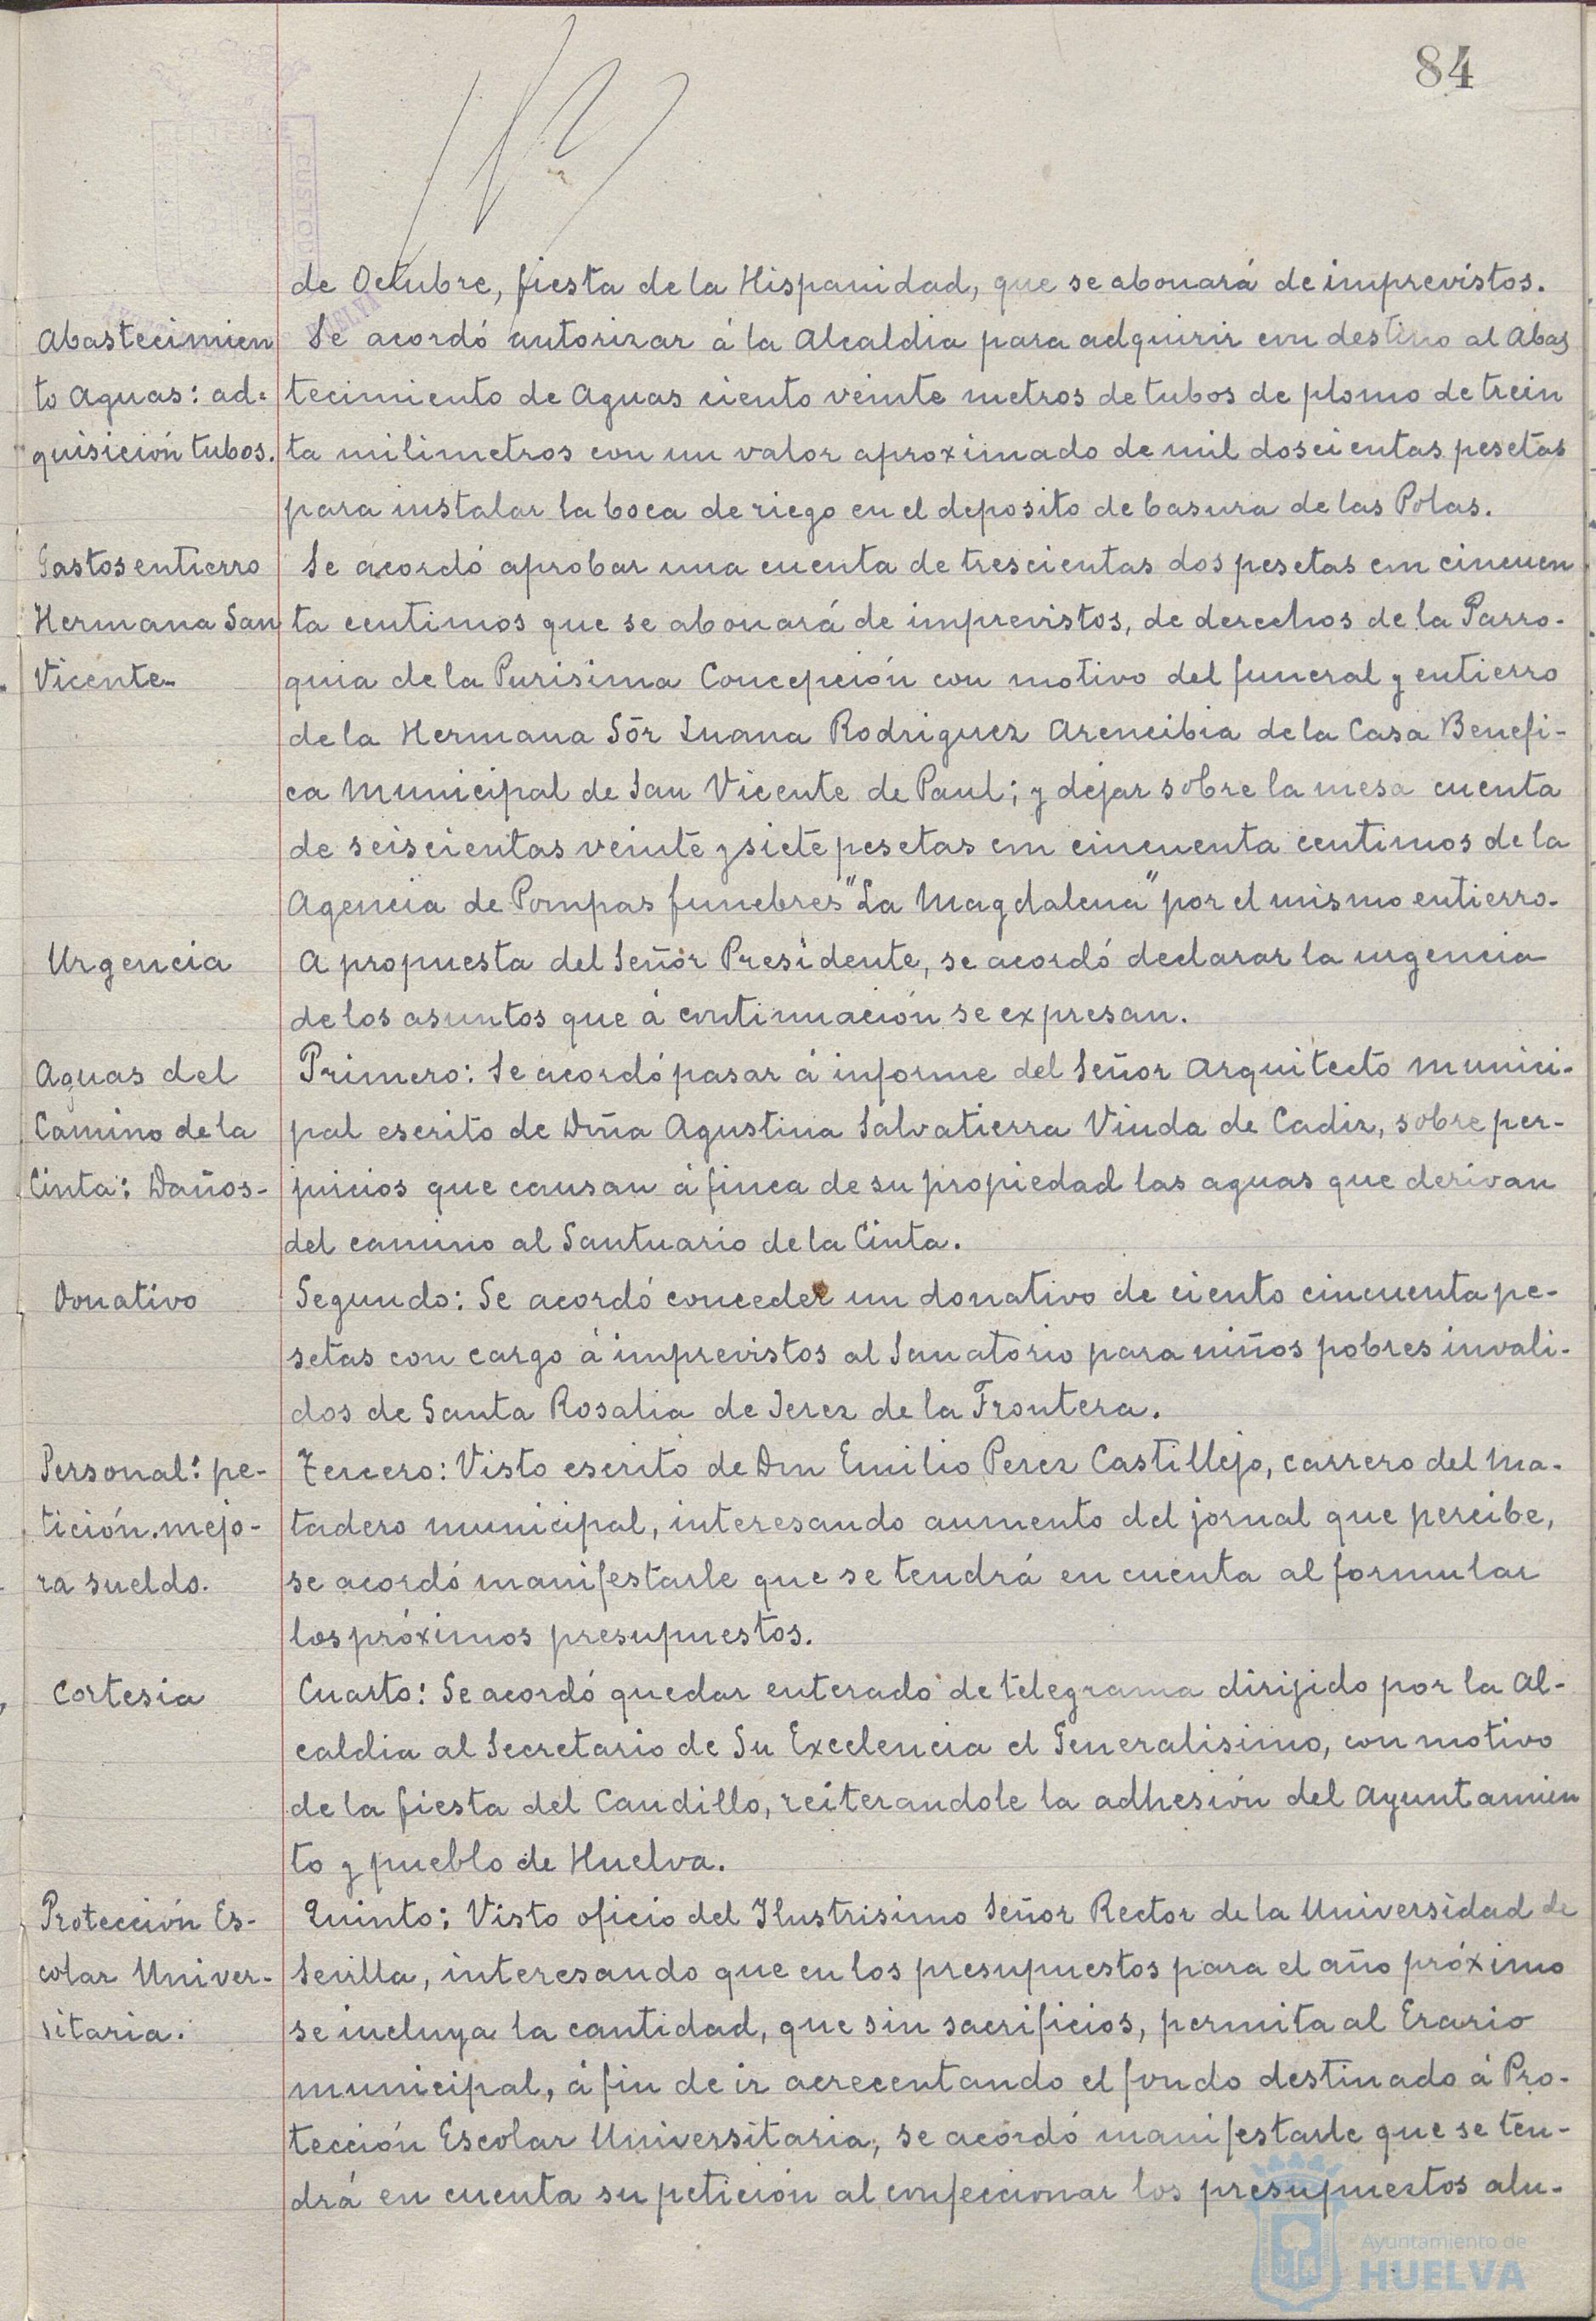 84
de Octubre, fiesta de la Hispanidad, que se abonará de imprevistos.
Abastecimien
to Aguas: ad-
quisición tubos.
Se acordó autorizar á la Alcaldia para adquirir con destino al Abas
tecimiento de Aguas ciento veinte metros de tubos de plomo de trein
ta milimetros con un valor aproximado de mil doscientas pesetas
para instalar la boca de riego en el deposito de basura de las Polas.
Gastos entierro
Hermana San
Vicente-
Se acordó aprobar una cuenta de trescientas dos pesetas con cincuen
ta centimos que se abonará de imprevistos, de derechos de la Parro-
quia de la Purisima Concepción con motivo del funeral y entierro
de la Hermana Sór Juana Rodriguez Arencibia de la Casa Benefi-
ca Municipal de San Vicente de Paul; y dejar sobre la mesa cuenta
de seiscientas veinte y siete pesetas con cincuenta centimos de la
Agencia de Pompas funebres "La Magdalena" por el mismo entierro-
Urgencia
A propuesta del Señor Presidente, se acordó declarar la urgencia
de los asuntos que á continuación se expresan.
Aguas del
Camino de la
Cinta: Daños-
Primero: Se acordó pasar á informe del Señor Arquitecto munici-
pal escrito de Dña Agustina Salvatierra Viuda de Cadiz, sobre per-
juicios que causan á finca de su propiedad las aguas que derivan
del camino al Santuario de la Cinta.
Donativo
Segundo: Se acordó conceder un donativo de ciento cincuenta pe-
setas con cargo á imprevistos al Sanatorio para niños pobres invali-
dos de Santa Rosalia de Jerez de la Frontera.
Personal: pe-
tición mejo-
ra sueldo.
Tercero: Visto escrito de Don Emilio Perez Castillejo, carrero del Ma-
tadero municipal, interesando aumento del jornal que percibe,
se acordó manifestarle que se tendrá en cuenta al formular
los próximos presupuestos.
Cortesia
Cuarto: Se acordó quedar enterado de telegrama dirijido por la Al-
caldia al Secretario de Su Excelencia el Generalisimo, con motivo
de la fiesta del Caudillo, reiterandole la adhesión del Ayuntamien
to y pueblo de Huelva.
Protección Es-
colar Univer-
sitaria.
Quinto: Visto oficio del Ilustrisimo Señor Rector de la Universidad de
Sevilla, interesando que en los presupuestos para el año próximo
se incluya la cantidad, que sin sacrificios, permita al Erario
municipal, á fin de ir acrecentando el fondo destinado á Pro-
tección Escolar Universitaria, se acordó manifestarle que se ten-
drá en cuenta su petición al confeccionar los presupuestos alu-
Ayuntamiento de
HUELVA